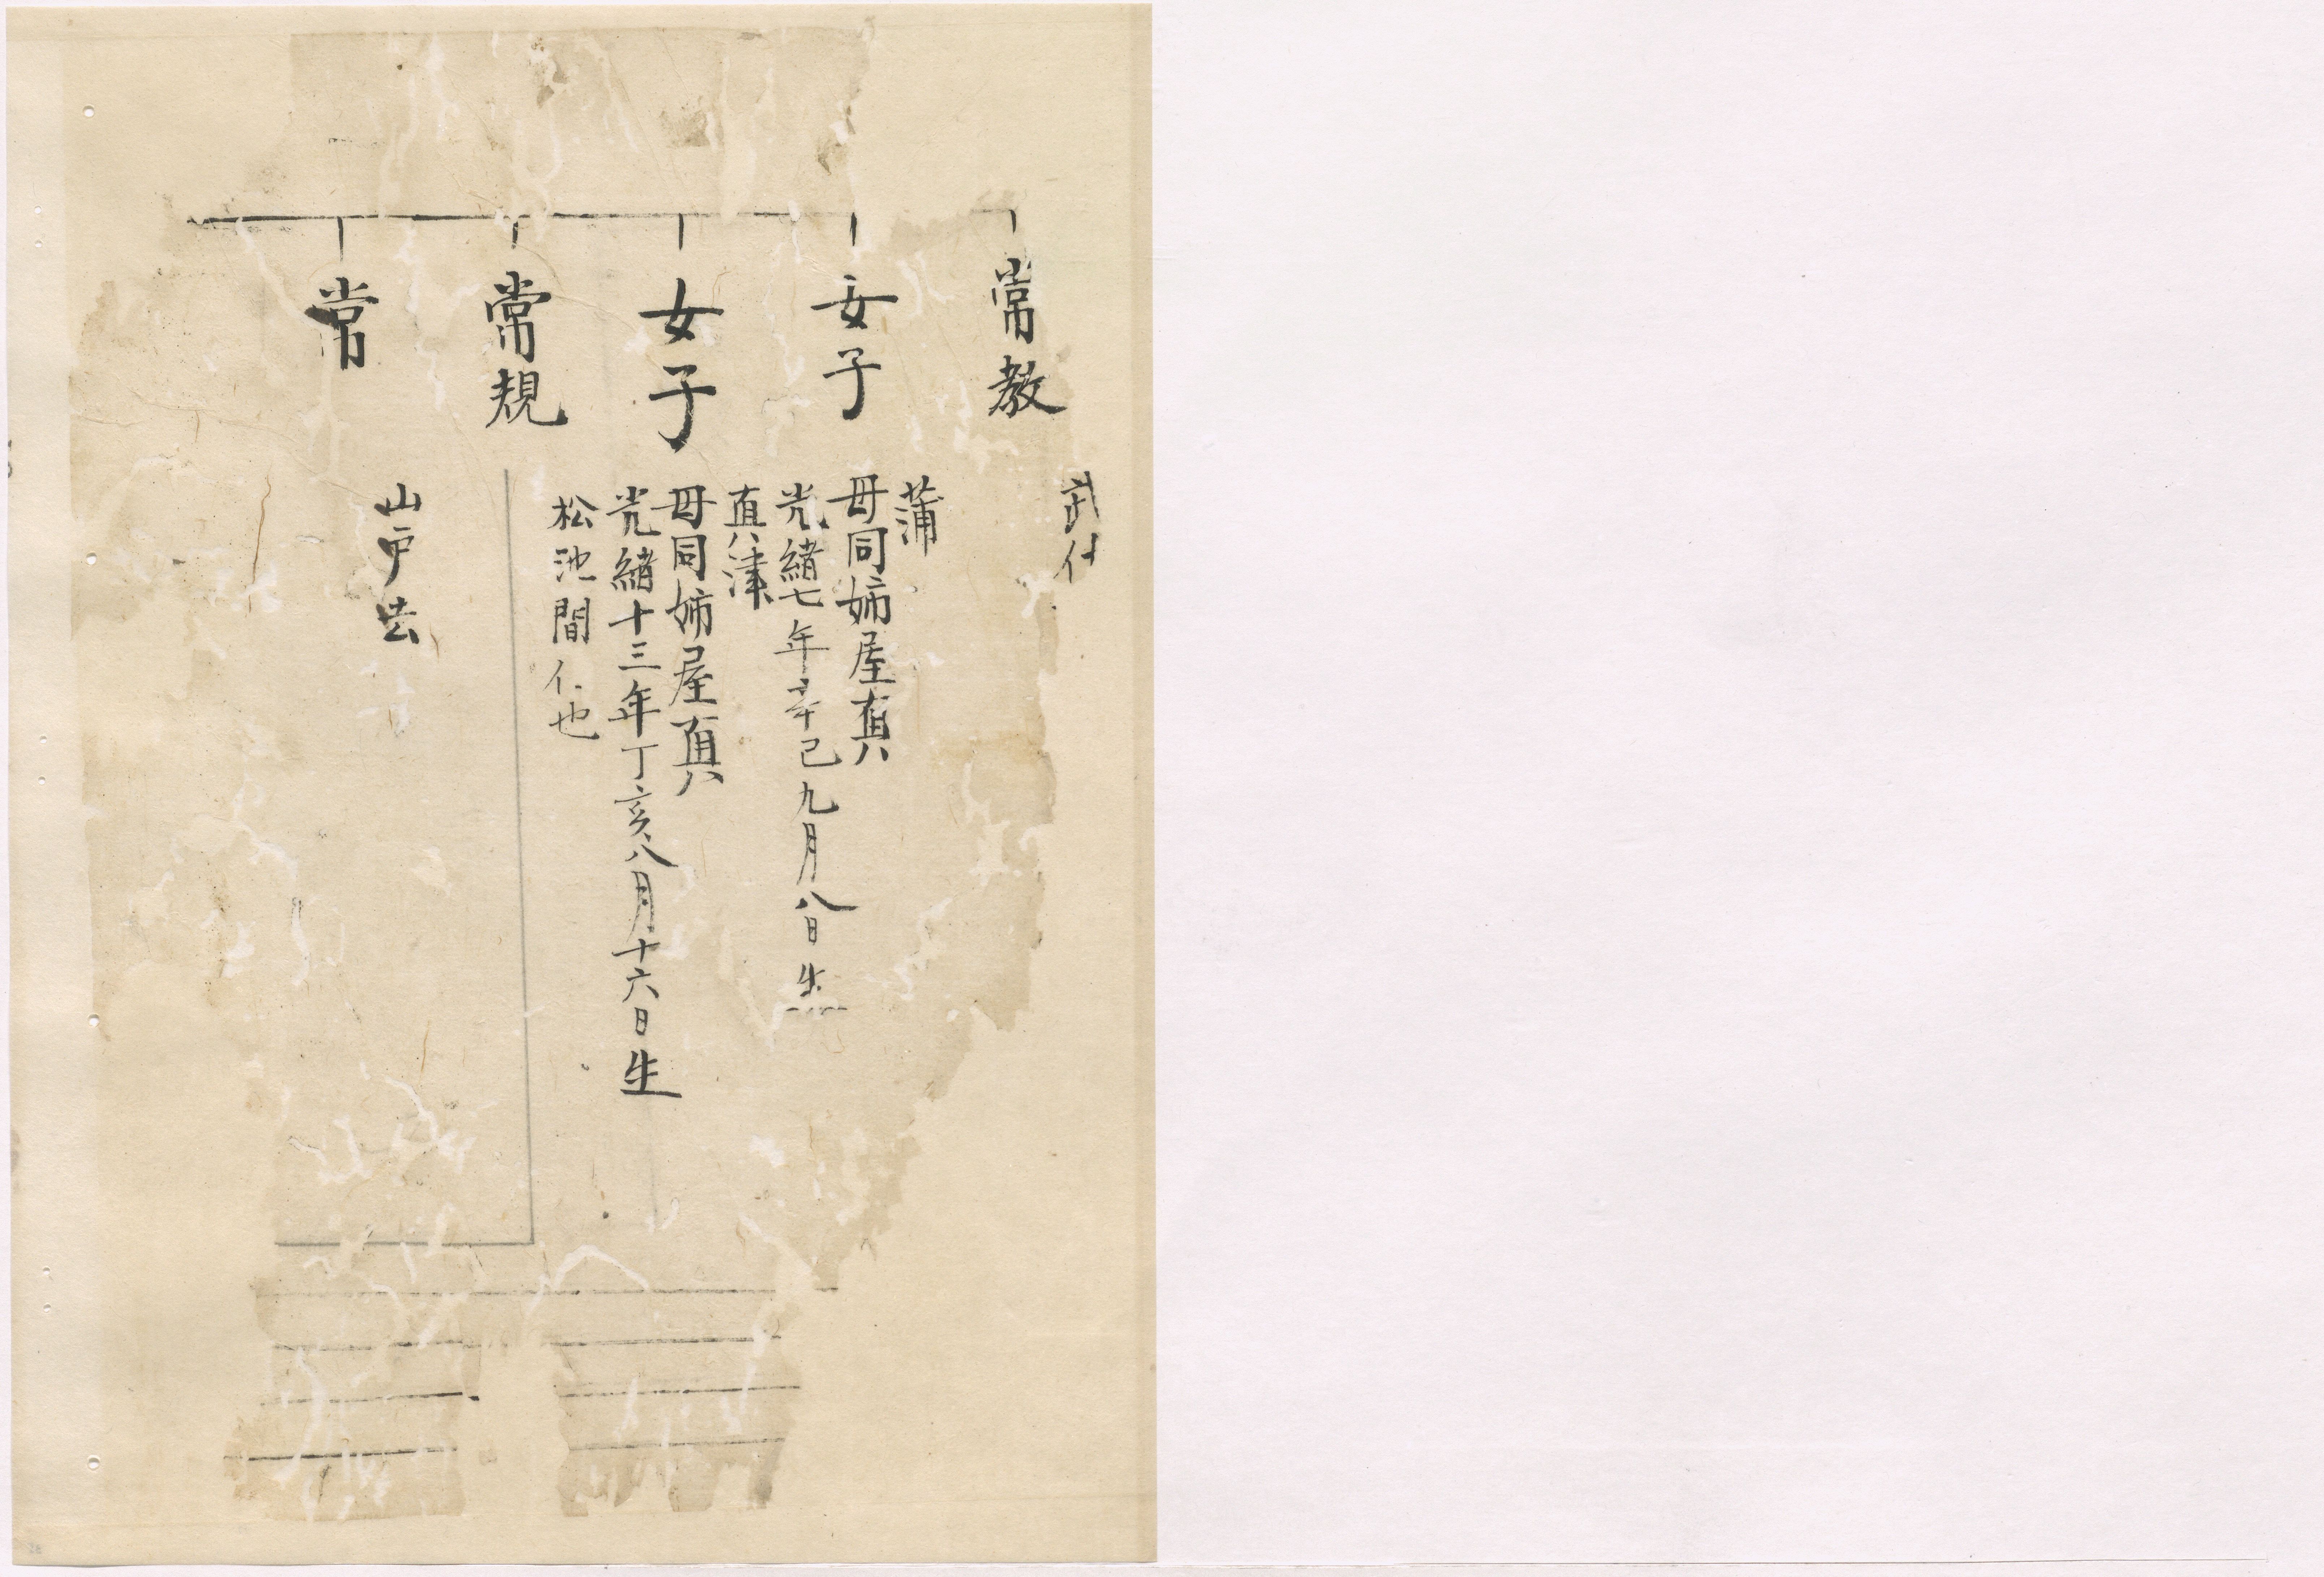 常教
武
女子
蒲
母同姉屋真
光緒七年辛己九月八日生
女子
真津
母同姉屋真
光緒十三年丁亥八月十六日生
常規
松池間仁也
常
山戸